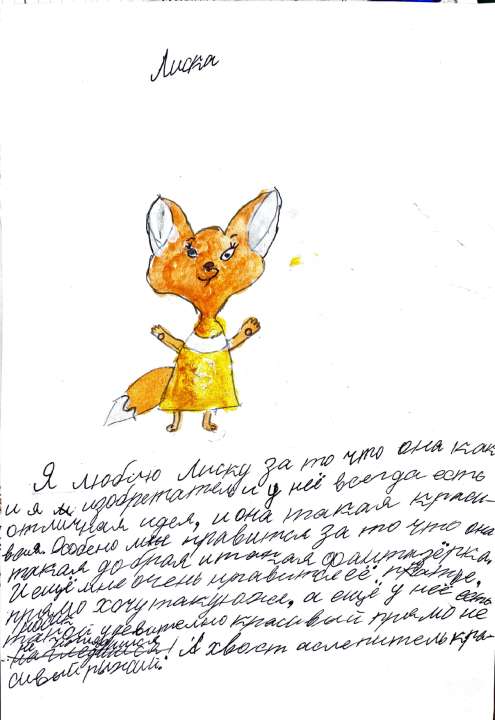 Лиска
Я люблю Лиску за то что она как
и я изобретатель и у неё всегда есть
отличная идея, и она такая краси-
вая. Особено мне нравится за то что она
такая добрая и такая фантазёрка.
И ещё мне очень нравится её
прямо хочу такую же, а ещё у неё есть
такой удевительно красивый прямо не
на
! А хвост аслепительнь кра-
сивый рыжий!